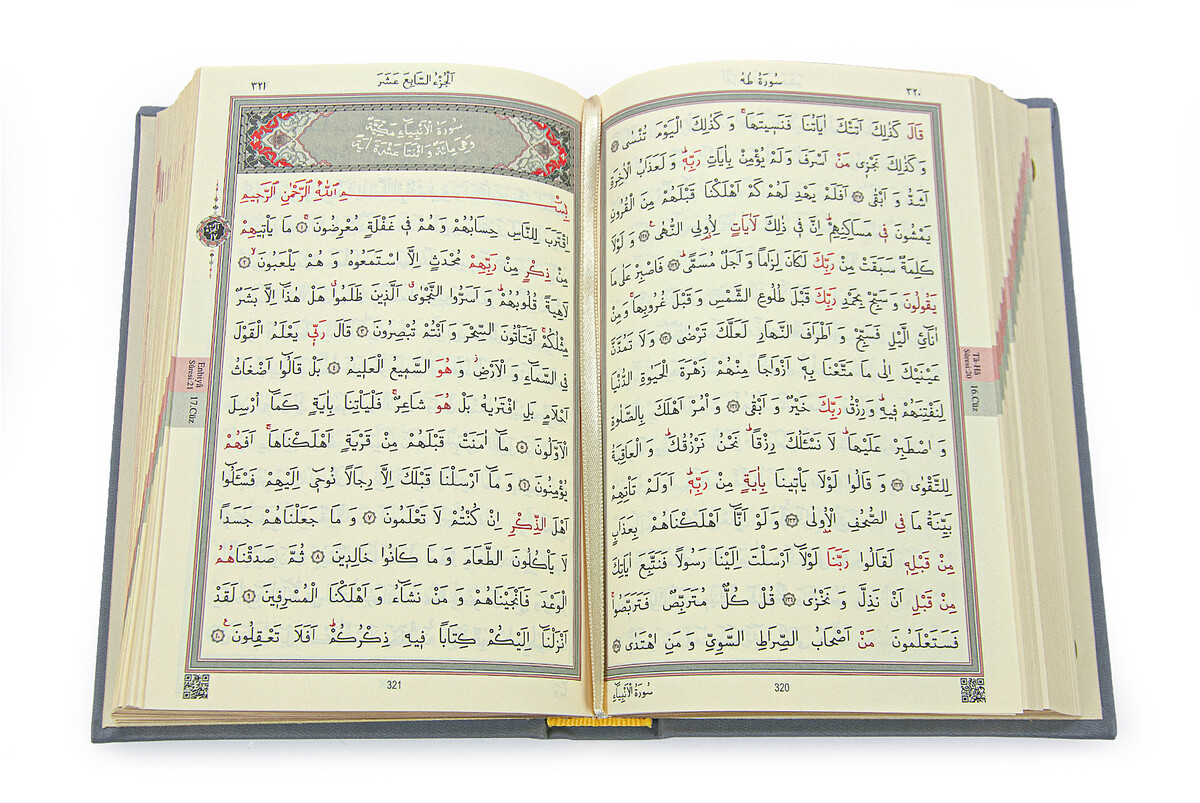 سُورَةُ طٰهٰ
٣٢٠
قَالَ كَذٰلِكَ اَتَتْكَ اٰيَاتُنَا فَنَسٖيتَهَاۚ وَكَذٰلِكَ الْيَوْمَ تُنْسٰى ﴿١٢٦﴾
وَكَذٰلِكَ نَجْزٖى مَنْ اَسْرَفَ وَلَمْ يُؤْمِنْ بِاٰيَاتِ رَبِّهٖؕ وَلَعَذَابُ الْاٰخِرَةِ
اَشَدُّ وَاَبْقٰى ﴿١٢٧﴾ اَفَلَمْ يَهْدِ لَهُمْ كَمْ اَهْلَكْنَا قَبْلَهُمْ مِنَ الْقُرُونِ
يَمْشُونَ فٖى مَسَاكِنِهِمْؕ اِنَّ فٖى ذٰلِكَ لَاٰيَاتٍ لِاُولِى النُّهٰىࣖ ﴿١٢٨﴾ وَلَوْلَا
كَلِمَةٌ سَبَقَتْ مِنْ رَبِّكَ لَكَانَ لِزَامًا وَاَجَلٌ مُسَمًّىؕ ﴿١٢٩﴾ فَاصْبِرْ عَلٰى مَا
يَقُولُونَ وَسَبِّحْ بِحَمْدِ رَبِّكَ قَبْلَ طُلُوعِ الشَّمْسِ وَقَبْلَ غُرُوبِهَاۚ وَمِنْ
اٰنَاۤئِ الَّيْلِ فَسَبِّحْ وَاَطْرَافَ النَّهَارِ لَعَلَّكَ تَرْضٰى ﴿١٣٠﴾ وَلَا تَمُدَّنَّ
عَيْنَيْكَ اِلٰى مَا مَتَّعْنَا بِهٖۤ اَزْوَاجًا مِنْهُمْ زَهْرَةَ الْحَيٰوةِ الدُّنْيَا
لِنَفْتِنَهُمْ فٖيهِؕ وَرِزْقُ رَبِّكَ خَيْرٌ وَاَبْقٰى ﴿١٣١﴾ وَأْمُرْ اَهْلَكَ بِالصَّلٰوةِ
وَاصْطَبِرْ عَلَيْهَاؕ لَا نَسْـَٔلُكَ رِزْقًاؕ نَحْنُ نَرْزُقُكَؕ وَالْعَاقِبَةُ
لِلتَّقْوٰى ﴿١٣٢﴾ وَقَالُوا لَوْلَا يَأْتٖينَا بِاٰيَةٍ مِنْ رَبِّهٖؕ اَوَلَمْ تَأْتِهِمْ
بَيِّنَةُ مَا فِى الصُّحُفِ الْاُولٰى ﴿١٣٣﴾ وَلَوْ اَنَّاۤ اَهْلَكْنَاهُمْ بِعَذَابٍ
مِنْ قَبْلِهٖ لَقَالُوا رَبَّنَا لَوْلَاۤ اَرْسَلْتَ اِلَيْنَا رَسُولًا فَنَتَّبِعَ اٰيَاتِكَ
مِنْ قَبْلِ اَنْ نَذِلَّ وَنَخْزٰى ﴿١٣٤﴾ قُلْ كُلٌّ مُتَرَبِّصٌ فَتَرَبَّصُواۚ
فَسَتَعْلَمُونَ مَنْ اَصْحَابُ الصِّرَاطِ السَّوِىِّ وَمَنِ اهْتَدٰى ﴿١٣٥﴾
Tâ-Hâ
Sûresi:20
16.Cüz
320
سُورَةُ الْاَنْبِيَاۤءِ
اَلْجُزْءُ السَّابِعَ عَشَرَ
٣٢١
سُورَةُ الْاَنْبِيَاۤءِ مَكِّيَّةٌ
وَهِىَ مِائَةٌ وَاثْنَتَا عَشْرَةَ اٰيَةً
بِسْمِ اللّٰهِ الرَّحْمٰنِ الرَّحٖيمِ
اِقْتَرَبَ لِلنَّاسِ حِسَابُهُمْ وَهُمْ فٖى غَفْلَةٍ مُعْرِضُونَۚ ﴿١﴾ مَا يَأْتٖيهِمْ
مِنْ ذِكْرٍ مِنْ رَبِّهِمْ مُحْدَثٍ اِلَّا اسْتَمَعُوهُ وَهُمْ يَلْعَبُونَۙ ﴿٢﴾
لَاهِيَةً قُلُوبُهُمْؕ وَاَسَرُّوا النَّجْوٰىۗ اَلَّذٖينَ ظَلَمُواۗ هَلْ هٰذَاۤ اِلَّا بَشَرٌ
مِثْلُكُمْۚ اَفَتَأْتُونَ السِّحْرَ وَاَنْتُمْ تُبْصِرُونَ ﴿٣﴾ قَالَ رَبّٖى يَعْلَمُ الْقَوْلَ
فِى السَّمَاۤءِ وَالْاَرْضِؗ وَهُوَ السَّمٖيعُ الْعَلٖيمُ ﴿٤﴾ بَلْ قَالُوۤا اَضْغَاثُ
اَحْلَامٍ بَلِ افْتَرٰيهُ بَلْ هُوَ شَاعِرٌۚ فَلْيَأْتِنَا بِاٰيَةٍ كَمَاۤ اُرْسِلَ
الْاَوَّلُونَ ﴿٥﴾ مَاۤ اٰمَنَتْ قَبْلَهُمْ مِنْ قَرْيَةٍ اَهْلَكْنَاهَاۚ اَفَهُمْ
يُؤْمِنُونَ ﴿٦﴾ وَمَاۤ اَرْسَلْنَا قَبْلَكَ اِلَّا رِجَالًا نُوحٖۤى اِلَيْهِمْ فَسْـَٔلُوۤا
اَهْلَ الذِّكْرِ اِنْ كُنْتُمْ لَا تَعْلَمُونَ ﴿٧﴾ وَمَا جَعَلْنَاهُمْ جَسَدًا
لَا يَأْكُلُونَ الطَّعَامَ وَمَا كَانُوا خَالِدٖينَ ﴿٨﴾ ثُمَّ صَدَقْنَاهُمُ
الْوَعْدَ فَاَنْجَيْنَاهُمْ وَمَنْ نَشَاۤءُ وَاَهْلَكْنَا الْمُسْرِفٖينَ ﴿٩﴾ لَقَدْ
اَنْزَلْنَاۤ اِلَيْكُمْ كِتَابًا فٖيهِ ذِكْرُكُمْؕ اَفَلَا تَعْقِلُونَࣖ ﴿١٠﴾
Enbiyâ
Sûresi:21
17.Cüz
321